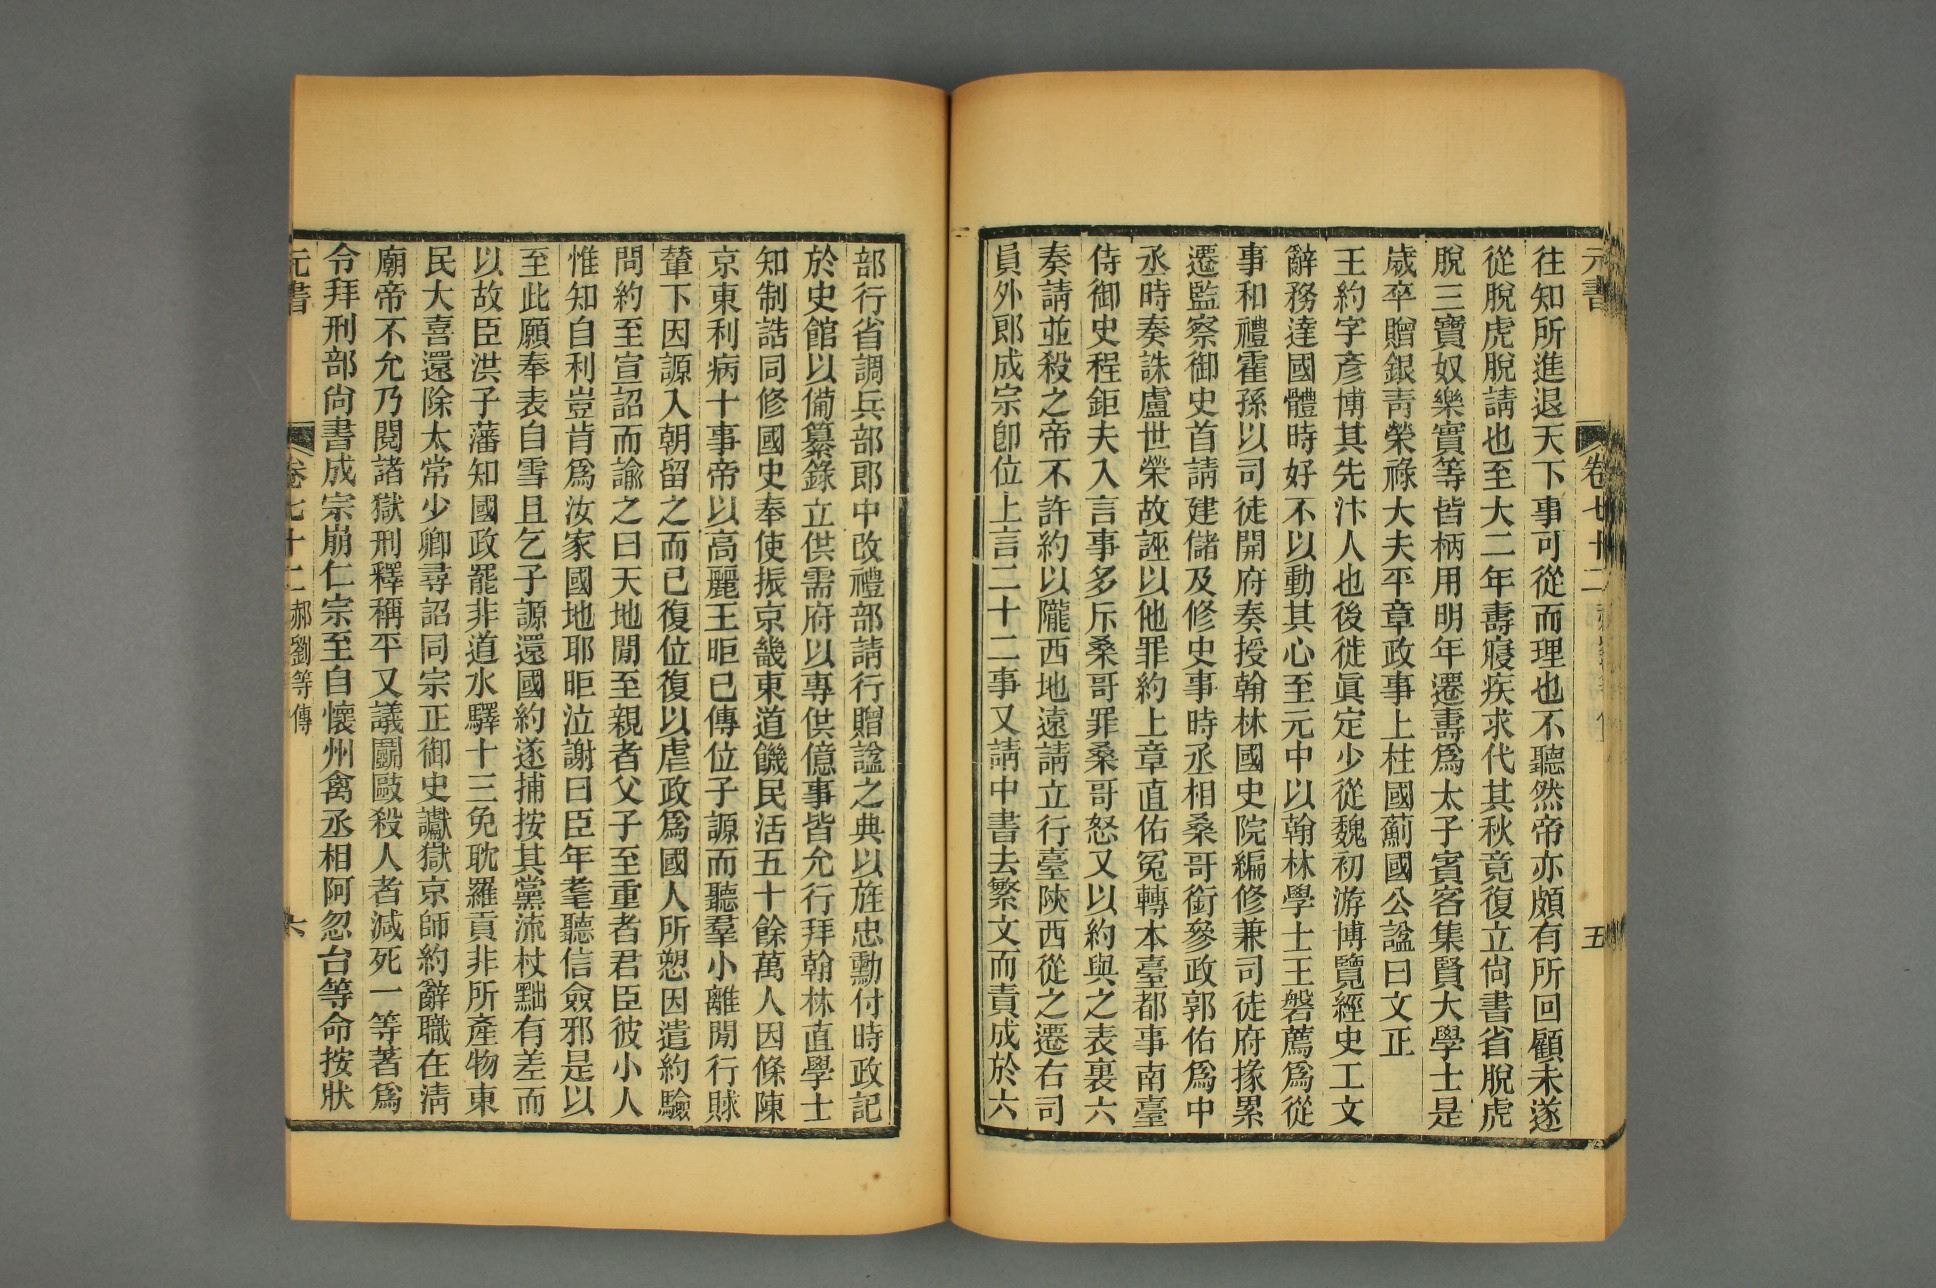 元書
卷七十二
五
往知所進退天下事可從而理也不聽然帝亦頗有所回顧未遂
從脫虎脫請也至大二年壽寢疾求代其秋竟復立尙書省脫虎
脫三寶奴樂實等皆柄用明年遷壽爲太子賓客集賢大學士是
歲卒贈銀靑榮祿大夫平章政事上柱國薊國公諡曰文正
王約字彥博其先汴人也後徙眞定少從魏初游博覽經史工文
辭務達國體時好不以動其心至元中以翰林學士王磐薦爲從
事和禮霍孫以司徒開府奏授翰林國史院編修兼司徒府掾累
遷監察御史首請建儲及修史事時丞相桑哥銜參政郭佑爲中
丞時奏誅盧世榮故誣以他罪約上章直佑冤轉本臺都事南臺
侍御史程鉅夫入言事多斥桑哥罪桑哥怒又以約與之表裏六
奏請並殺之帝不許約以隴西地遠請立行臺陝西從之遷右司
員外郞成宗卽位上言二十二事又請中書去繁文而責成於六
部行省調兵部郞中改禮部請行贈諡之典以旌忠勳付時政記
於史館以備纂錄立供需府以專供億事皆允行拜翰林直學士
知制誥同修國史奉使振京畿東道饑民活五十餘萬人因條陳
京東利病十事帝以高麗王昛已傳位子謜而聽羣小離閒行賕
輦下因謜入朝留之而已復位復以虐政爲國人所愬因遣約驗
問約至宣詔而諭之曰天地閒至親者父子至重者君臣彼小人
惟知自利豈肯爲汝家國地耶昛泣謝曰臣年耄聽信僉邪是以
至此願奉表自雪且乞子謜還國約遂捕按其黨流杖黜有差而
以故臣洪子藩知國政罷非道水驛十三免耽羅貢非所產物東
民大喜還除太常少卿尋詔同宗正御史讞獄京師約辭職在淸
廟帝不允乃閱諸獄刑釋稱平又議鬭毆殺人者減死一等著爲
令拜刑部尙書成宗崩仁宗至自懷州禽丞相阿忽台等命按狀
元書
卷七十二 郝劉等傳
六